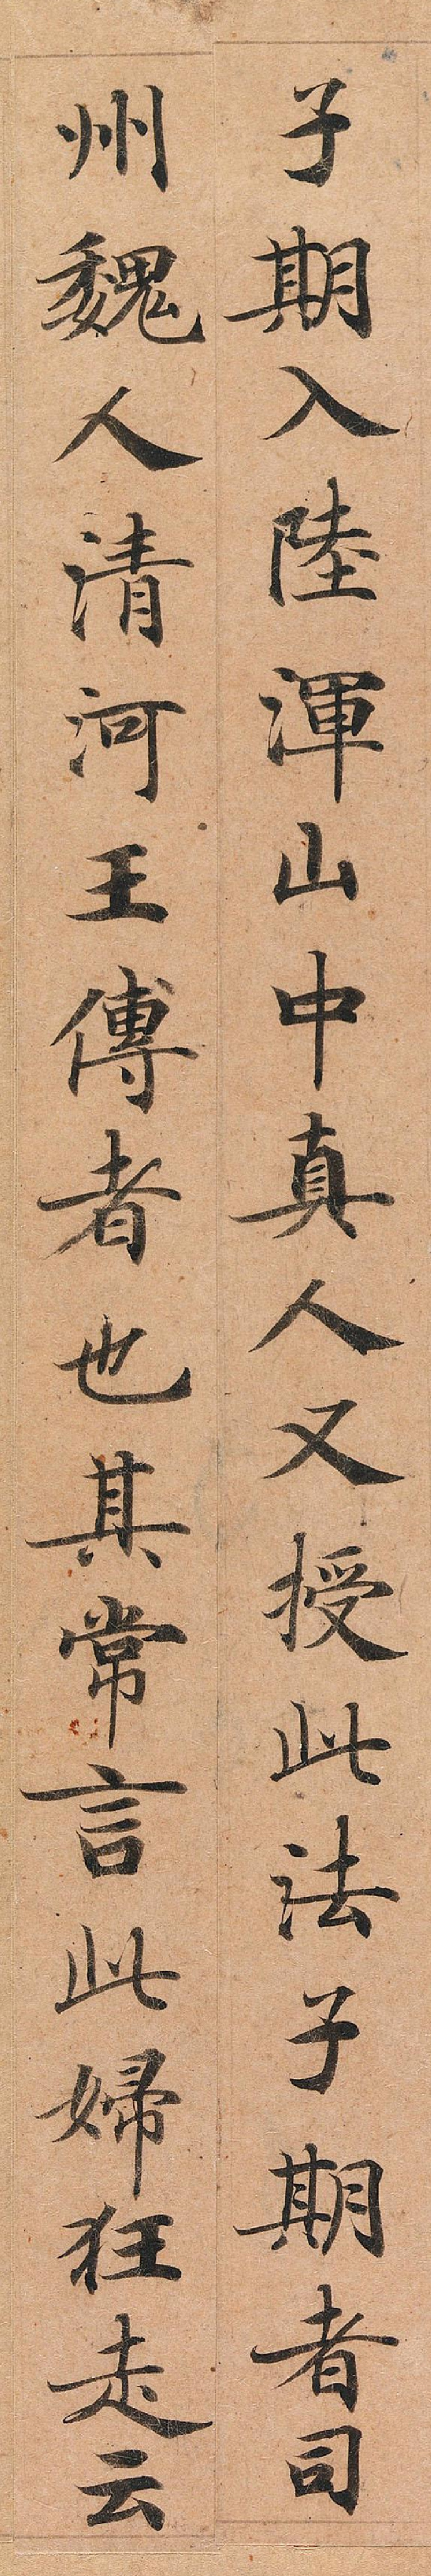 子期入陸渾山中真人又授此法子期者司
州魏人清河王傅者也其常言此婦狂走云